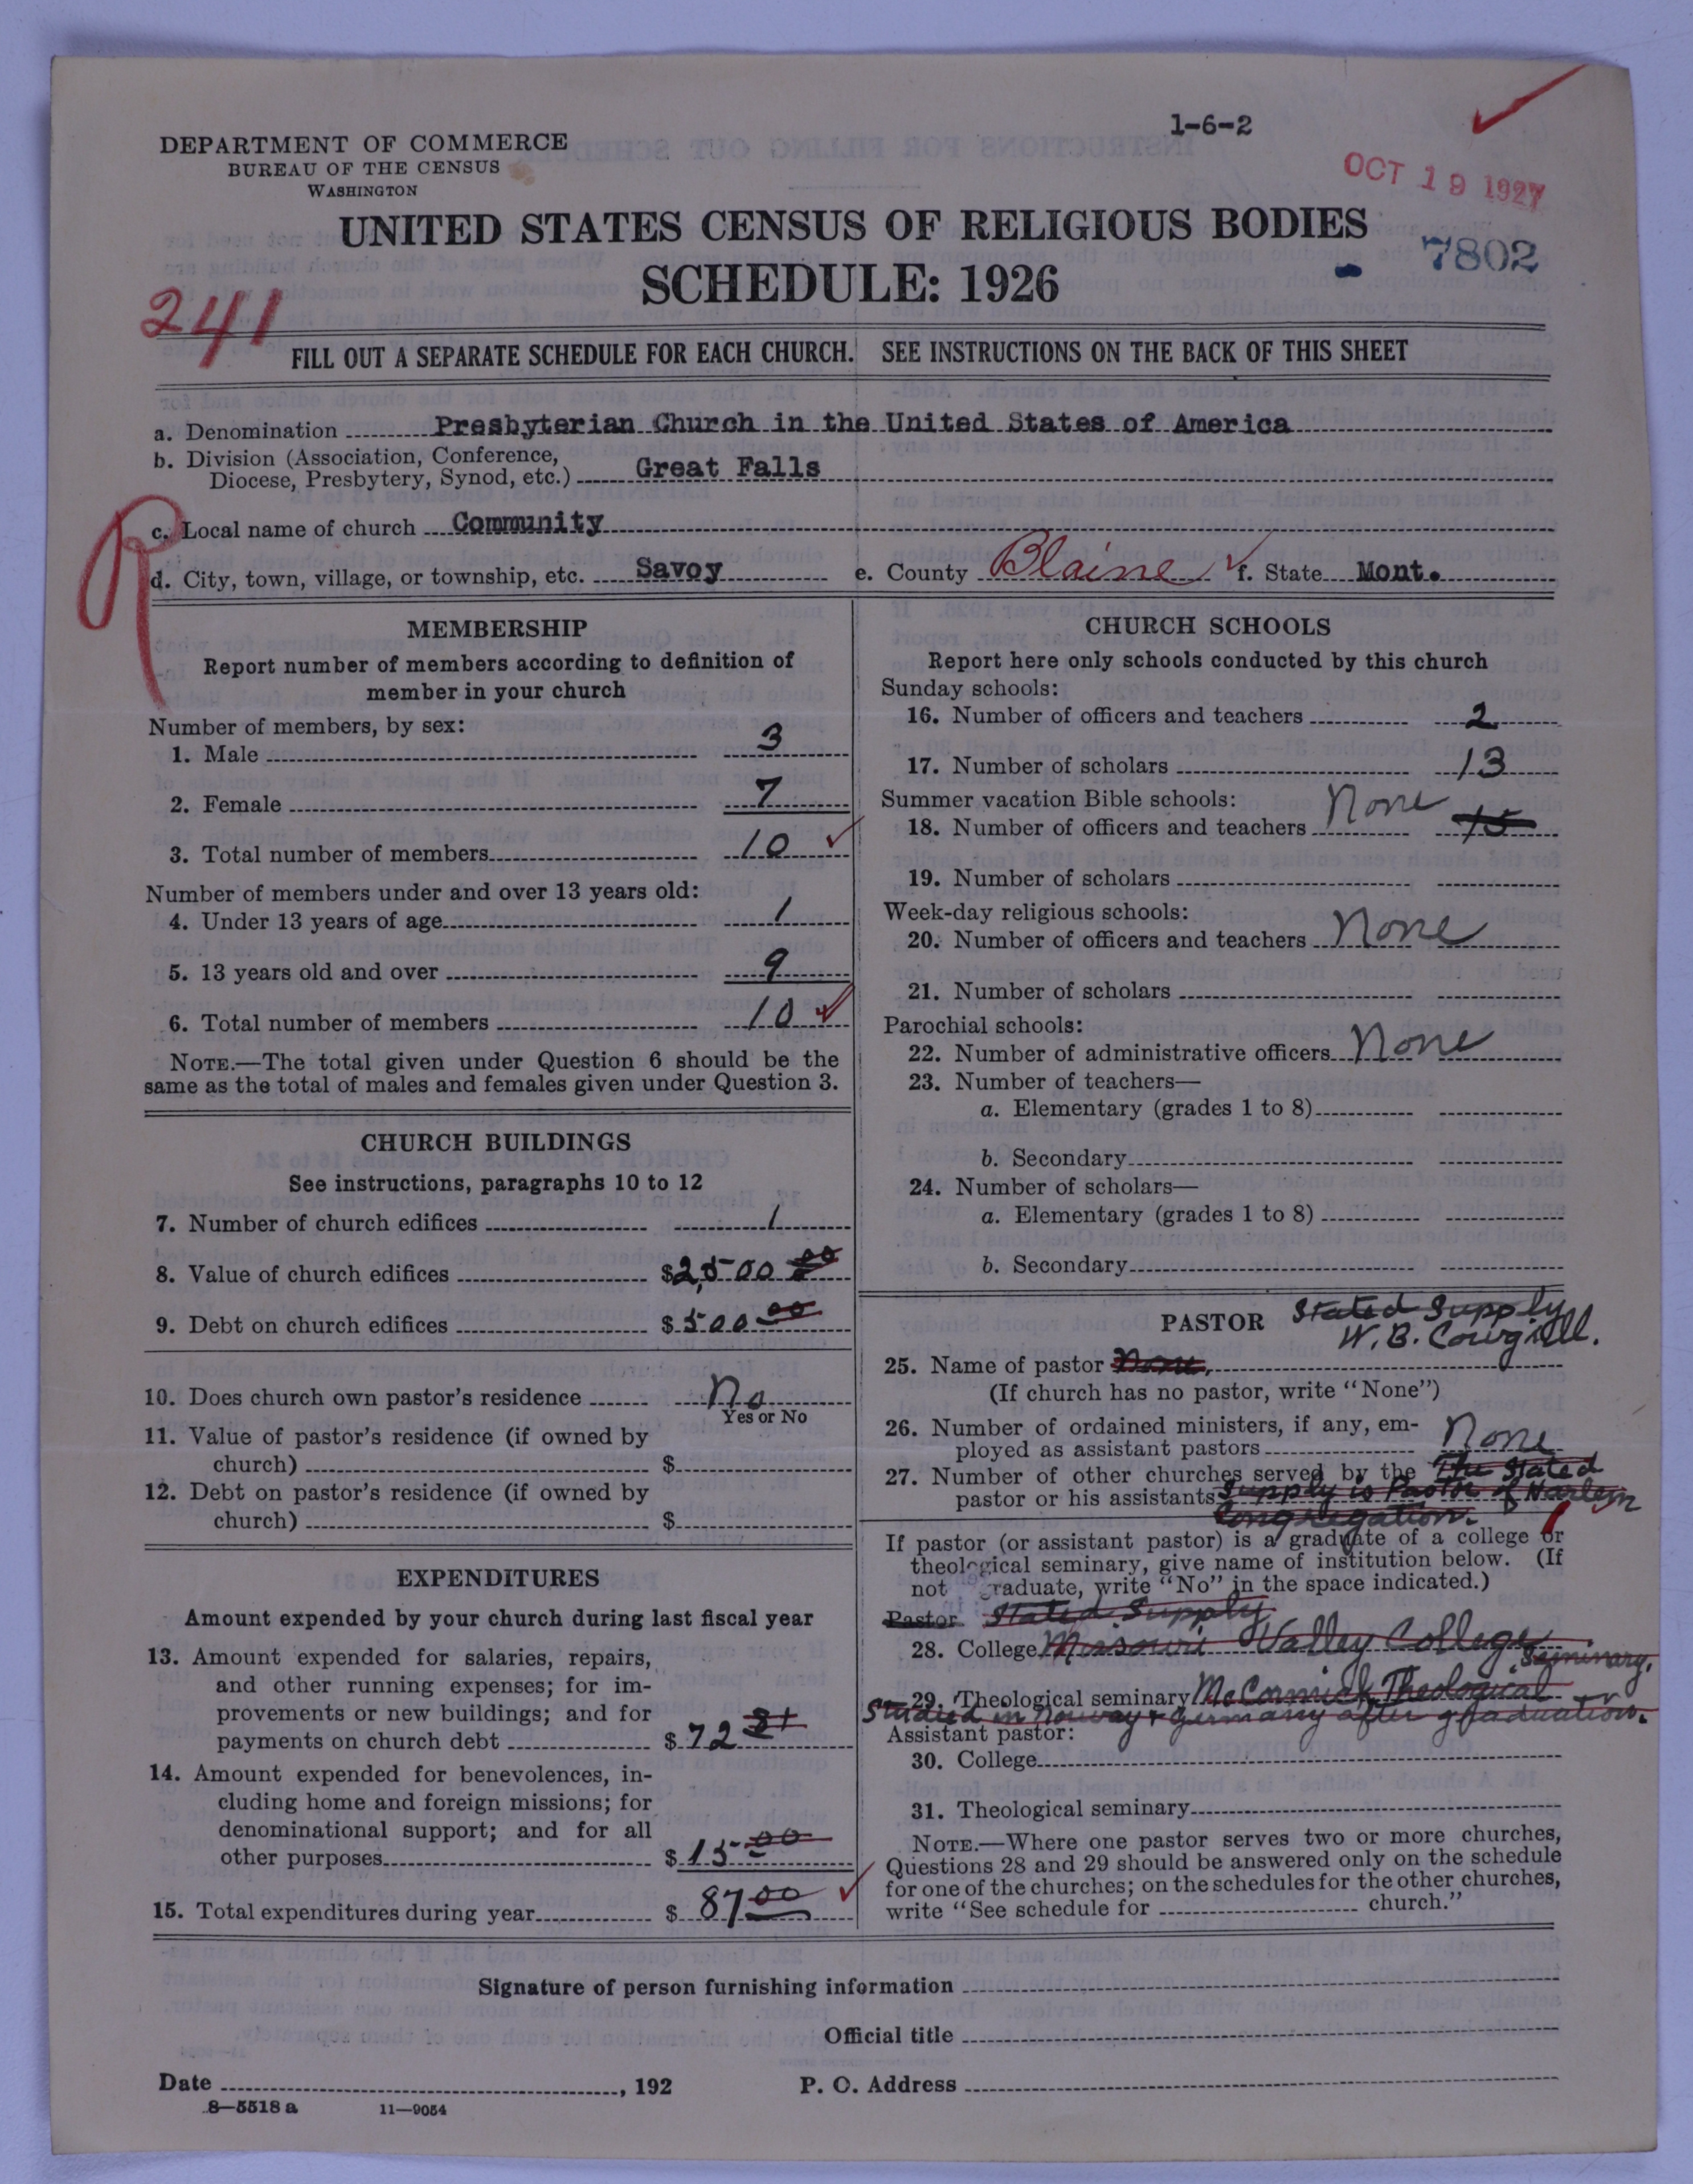 1-6-2
DEPARTMENT OF COMMERCE
BUREAU OF THE CENSUS
WASHINGTON
OCT 19 1927
UNITED STATES CENSUS OF RELIGIOUS BODIES
SCHEDULE: 1926
- 7802
241
FILL OUT A SEPARATE SCHEDULE FOR EACH CHURCH. SEE INSTRUCTIONS ON THE BACK OF THIS SHEET
a. Denomination Presbyterian Church in the United States of America
b. Division (Association, Conference,
Diocese, Presbytery, Synod, etc.) Great Falls
R
c. Local name of church Community
d. City, town, village, or township, etc. Savoy e. County Blaine f. State Mont.
MEMBERSHIP
Report number of members according to definition of
member in your church
Number of members, by sex:
1. Male 3
2. Female 7
3. Total number of members 10
Number of members under and over 13 years old:
4. Under 13 years of age 1
5. 13 years old and over 9
6. Total number of members 10
NOTE.—The total given under Question 6 should be the
same as the total of males and females given under Question 3.
CHURCH BUILDINGS
See instructions, paragraphs 10 to 12
7. Number of church edifices 1
8. Value of church edifices $2,500 00
9. Debt on church edifices $500 00
10. Does church own pastor's residence No
Yes or No
11. Value of pastor's residence (if owned by
church) $
12. Debt on pastor's residence (if owned by
church) $
EXPENDITURES
Amount expended by your church during last fiscal year
13. Amount expended for salaries, repairs,
and other running expenses; for im-
provements or new buildings; and for
payments on church debt $72
14. Amount expended for benevolences, in-
cluding home and foreign missions; for
denominational support; and for all
other purposes $15 00
15. Total expenditures during year $87 00
CHURCH SCHOOLS
Report here only schools conducted by this church
Sunday schools:
16. Number of officers and teachers 2
17. Number of scholars 13
Summer vacation Bible schools:
18. Number of officers and teachers None 15
19. Number of scholars
Week-day religious schools:
20. Number of officers and teachers None
21. Number of scholars
Parochial schools:
22. Number of administrative officers None
23. Number of teachers—
a. Elementary (grades 1 to 8)
b. Secondary
24. Number of scholars—
a. Elementary (grades 1 to 8)
b. Secondary
PASTOR Stated Supply
W. B. Cowgill.
25. Name of pastor None,
(If church has no pastor, write "None")
26. Number of ordained ministers, if any, em-
ployed as assistant pastors None
27. Number of other churches served by the The Stated
pastor or his assistants Supply is Pastor of Harlem
Congregation. 1
If pastor (or assistant pastor) is a graduate of a college or
theological seminary, give name of institution below. (If
not graduate, write "No" in the space indicated.)
Pastor Stated Supply
28. College Missouri Valley College
Seminary.
29. Theological seminary McCormick Theological
Studied in Norway & Germany after graduation.
Assistant pastor:
30. College
31. Theological seminary
NOTE.—Where one pastor serves two or more churches,
Questions 28 and 29 should be answered only on the schedule
for one of the churches; on the schedules for the other churches,
write "See schedule for church."
Signature of person furnishing information
Official title
Date , 192 P. O. Address
8—5518 a 11—9054